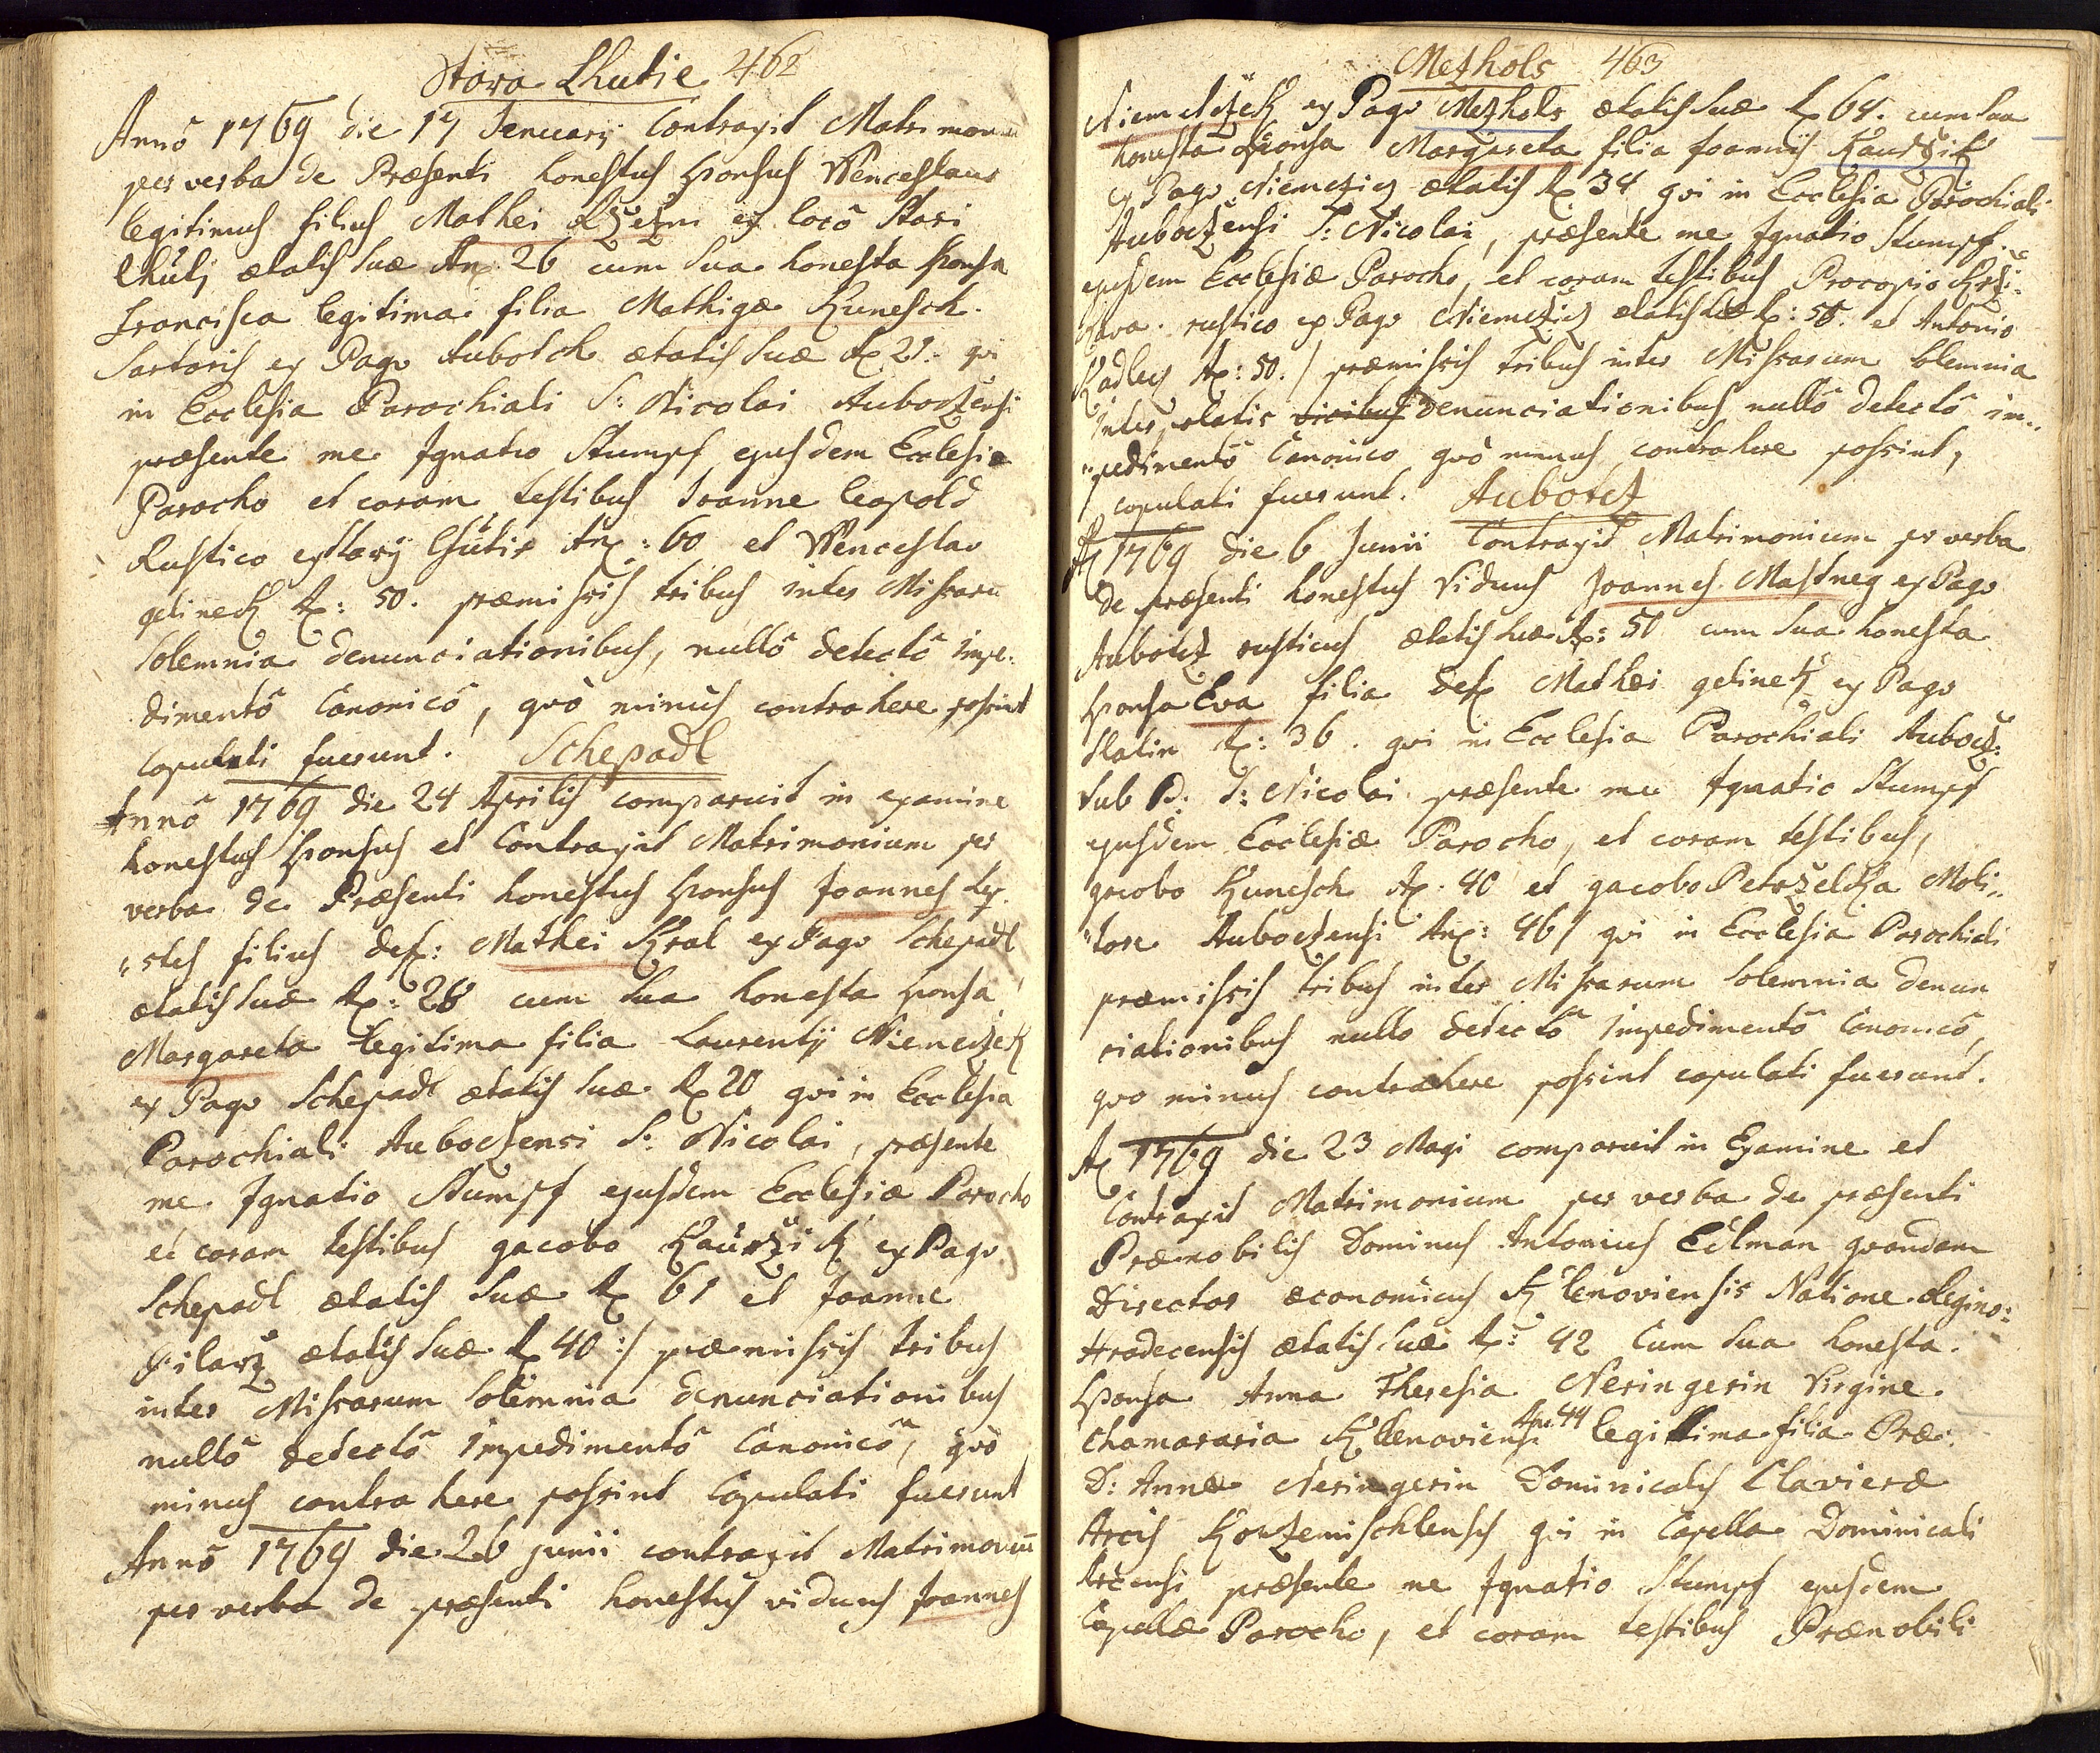 Stara Lhutie 462
Annô 1769 die 17 Januarij Contraxit Matrimon
per verba de Præsenti honestus sponsus Wenceslaus
legitimus filius Mathei ex locô Stari
Lhutj ætatis suæ An 26 cum sua honesta sponsa
Francisca legitima filia Mathiæ Kunesch
Sartoris ex Pago Aubotch ætatis suæ A 21 qvi
in Ecclesia Parochiali S: Nicolai Auboczensi
præsente me Ignatio Stumpf ejusdem Ecclesiæ
Parocho et coram testibus Joanne Leopold
Rustico ex Starij Lhutie An: 60 et Wenceslao
gelinek A: 50. præmissis tribus inter Missaru
Solemnia denunciationibus, nullô detectô impe:
dimentô Canonicô, qvò minus contrahere possint
Copulati fuerunt. Schepadl
Annô 1769 die 24 Aprilis comparuit in examine
honestus sponsus et Contraxit Matrimonium per
verba de Præsenti honestus sponsus Joannes
filius def: Mathei Kral ex Pago Schepadl
ætatis suæ A: 26 cum sua honesta sponsa
Margareta legitima filia Laurentij Niemeczek
ex Pago Schepadl ætatis suæ A 20 qvi in Ecclesia
Parochiali Auboczensi S: Nicolai, præsente
me Ignatio Stumpf ejusdem Ecclesiæ Parocho
et coram testibus gacobo Kaurzik ex Pago
Schepadl ætatis suæ A 61 et Joanne
Pilarz ætatis suæ A 40 :/ præmissis tribus
inter Missarum Solemnia denunciationibus
nullô detectô impedimentô Canonicô, qvò
minus contrahere possint Copulati fuerunt
Annô 1769 die 26 junii contraxit Matrimoniū
per verba de præsenti honestus viduus Joannes
Mezhols 463
Niemeczek ex Pago Mezhols ætatis suæ A 64. cum sua
honesta sponsa Margareta filia Joannis Kaurzik
ex Pago Niemczicz ætatis A 34 qvi in Ecclesia Parochiali
Auboczensi S: Nicolai, præsente me Ignatio Stumpf
ejusdem Ecclesiæ Parocho, et coram testibus Procopio Krzi:
rustico ex Pago Niemczicz ætatis suæ A: 58. et Antonio
Kadlecz A: 50. / præmissis tribus inter Missarum solemnia
interpolatis vicibus denunciationibus nullô detectô im„
„pedimentô Canonico qvò minus contrahere possint,
copulati fuerunt. Aubotcz
A 1769 die 6 Junii Contraxit Matrimonium pr verba
de præsenti honestus Viduus Joannes Mastney ex Pago
Aubotcz rusticus ætatis suæ A: 50 cum sua honesta
sponsa Eva filia def Mathæi gelinek ex Pago
Slatin A: 36. qvi in Ecclesia Parochiali Aubocz:
sub P: S: Nicolai præsente me Ignatio Stumpf
ejusdem Ecclesiæ Parocho, et coram testibus,
gacobo Kunesch A. 40 et gacobo Petrzelka Moli„
„tore Auboczensi An: 46/ qvi in Ecclesia Parochiali
præmissis tribus inter Missarum Solemnia denun
ciationibus nullo detectô impedimentô Canonicô,
qvo minus contrahere possint copulati fuerunt.
A 1769 die 23 Maji comparuit in Examine et
Contraxit Matrimonium per verba de præsenti
Prænobilis Dominus Antonius Edlman qvondam
Director æconomicus Klenoviensis Natione Regino:
Hradecensis ætatis suæ A: 42 Cum sua honesta
sponsa Anna Theresia Neringerin Virgine
Chamararia Klenoviensi An: 44 legittima filia Præ:
D: Annæ Neringerin Dominicalis Clavieræ
Arcis Korzemischlensis qvi in Capella Dominicali
Arcensi præsente me Ignatio Stumpf ejusdem
Capellæ Parocho, et coram testibus Prænobili